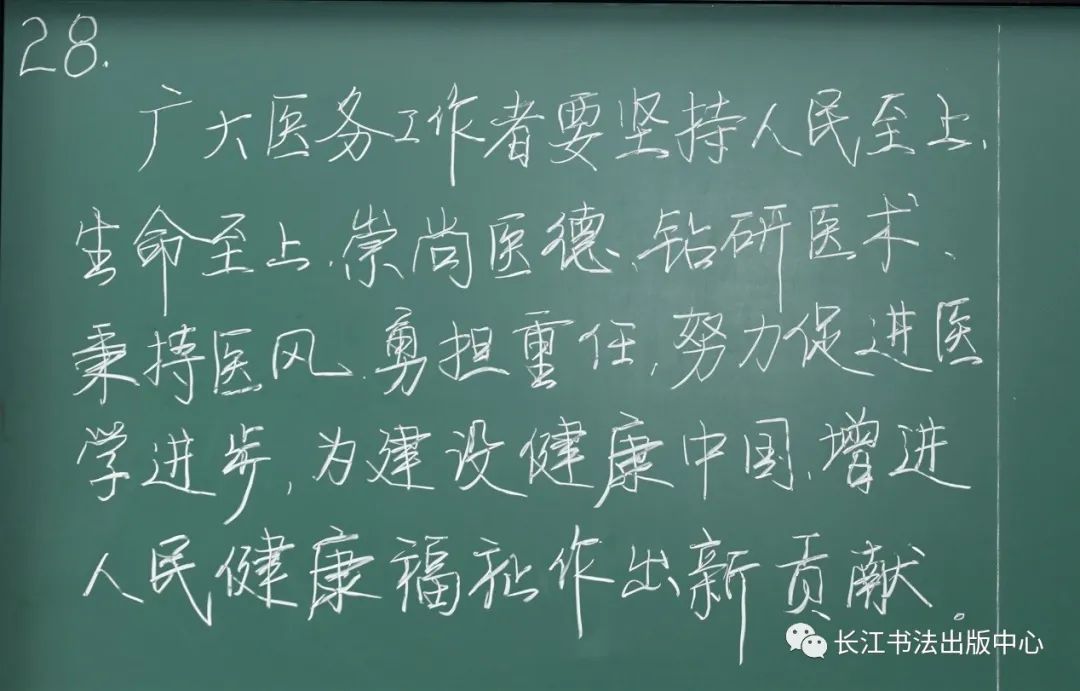 28.
广大医务工作者要坚持人民至上、
生命至上,崇尚医德、钻研医术、
秉持医风、勇担重任,努力促进医
学进步,为建设健康中国、增进
人民健康福祉作出新贡献。
长江书法出版中心